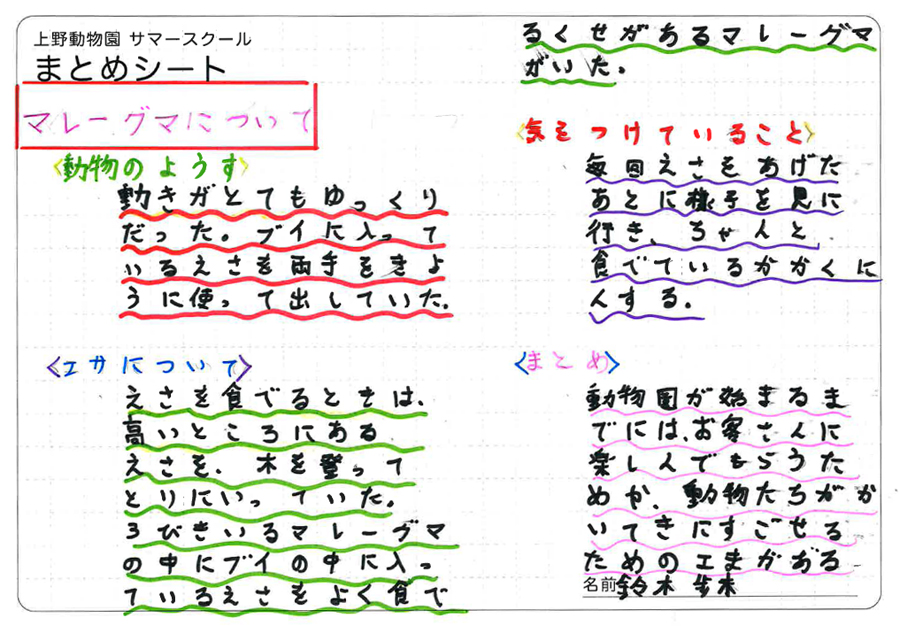 上野動物園 サマースクール
まとめシート
マレーグマについて
<動物のようす>
動きがとてもゆっくり
だった。ブイに入って
いるえさを両手をきよ
うに使って出していた。
<エサについて>
えさを食べるときは、
高いところにある
えさを、木を登って
とりにいっていた。
3びきいるマレーグマ
の中にブイの中に入っ
ているえさをよく食で
るくせがあるマレーグマ
がいた。
<気をつけていること>
毎回えさをあげた
あとに様子を見に
行き、ちゃんと
食でているかかくに
んする。
<まとめ>
動物園が始まるま
でには、お客さんに
楽しんでもらうた
めか、動物たちがか
いてきにすごせる
ためのエまがある
名前 鈴木